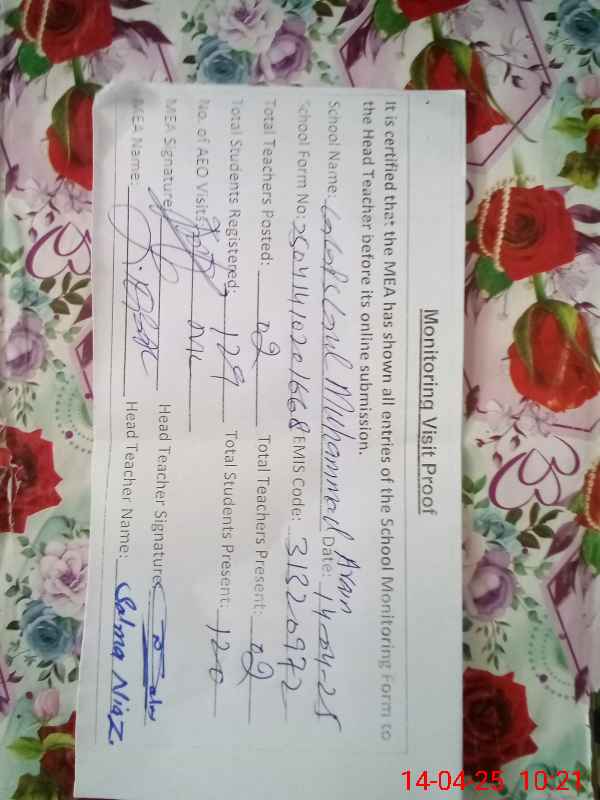 Monitoring Visit Proof
It is certified that the MEA has shown all entries of the School Monitoring Form to
the Head Teacher before its online submission.
School Name: Muhammad Ayan Date: 14-04-25
School Form No: 25041410201668 EMIS Code: 31320972
Total Teachers Posted: 02 Total Teachers Present: 02
Total Students Registered: 129 Total Students Present: 120
No. of AEO Visits: Nil
MEA Signature Head Teacher Signature
MEA Name: Head Teacher Name: Salma Niaz.
14-04-25 10:21